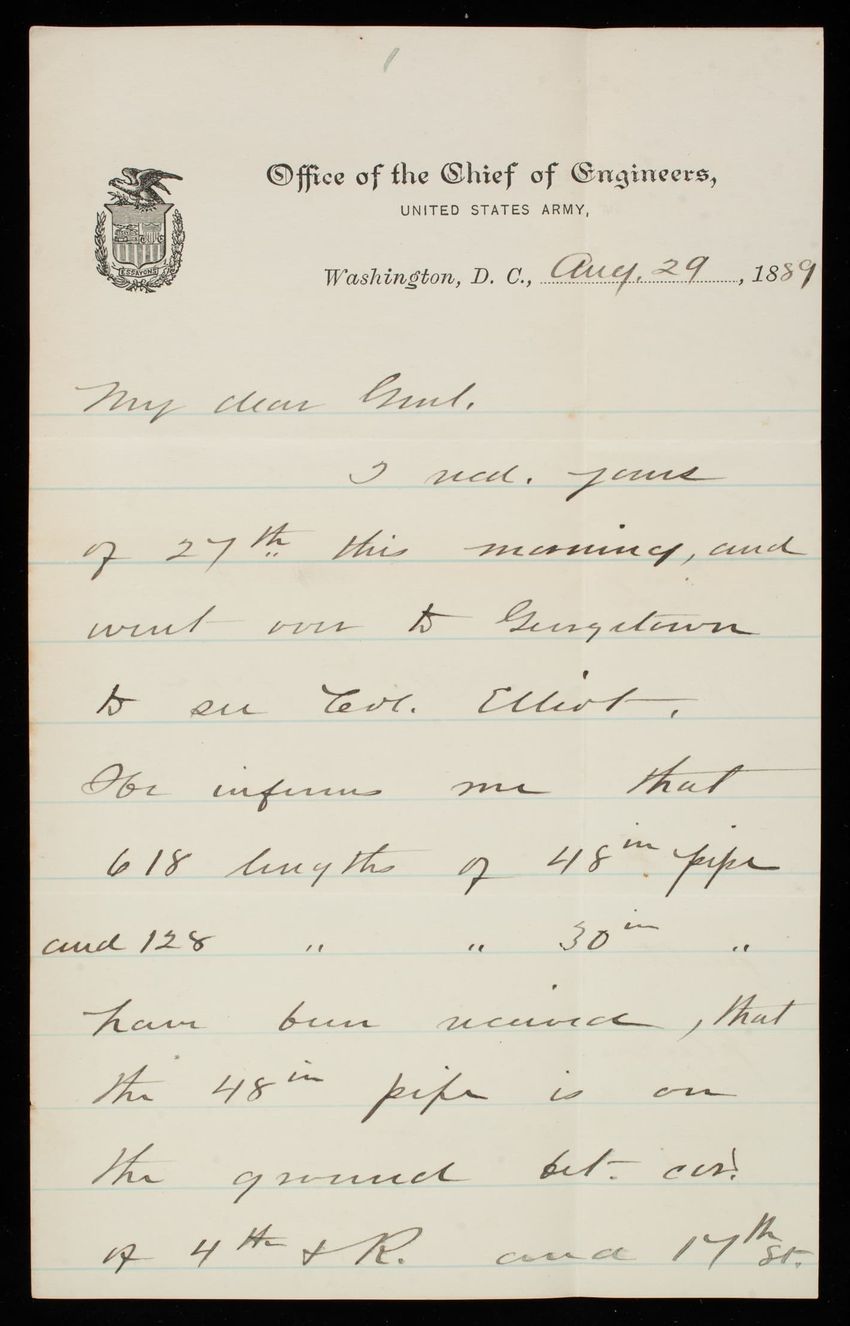 Office of the Chief of Engineers,
UNITED STATES ARMY,
ESSAYONS
Washington, D. C., Aug. 29, 1889
My dear Genl.
I recd. yours
of 27th this morning, and
went over to Georgetown
to see Col. Elliot.
He informs me that
618 lengths of 48in pipe
and 128 " " 30in "
have been received, that
the 48in pipe is on
the ground bet. cor.
of 4th & R. and 17th St.